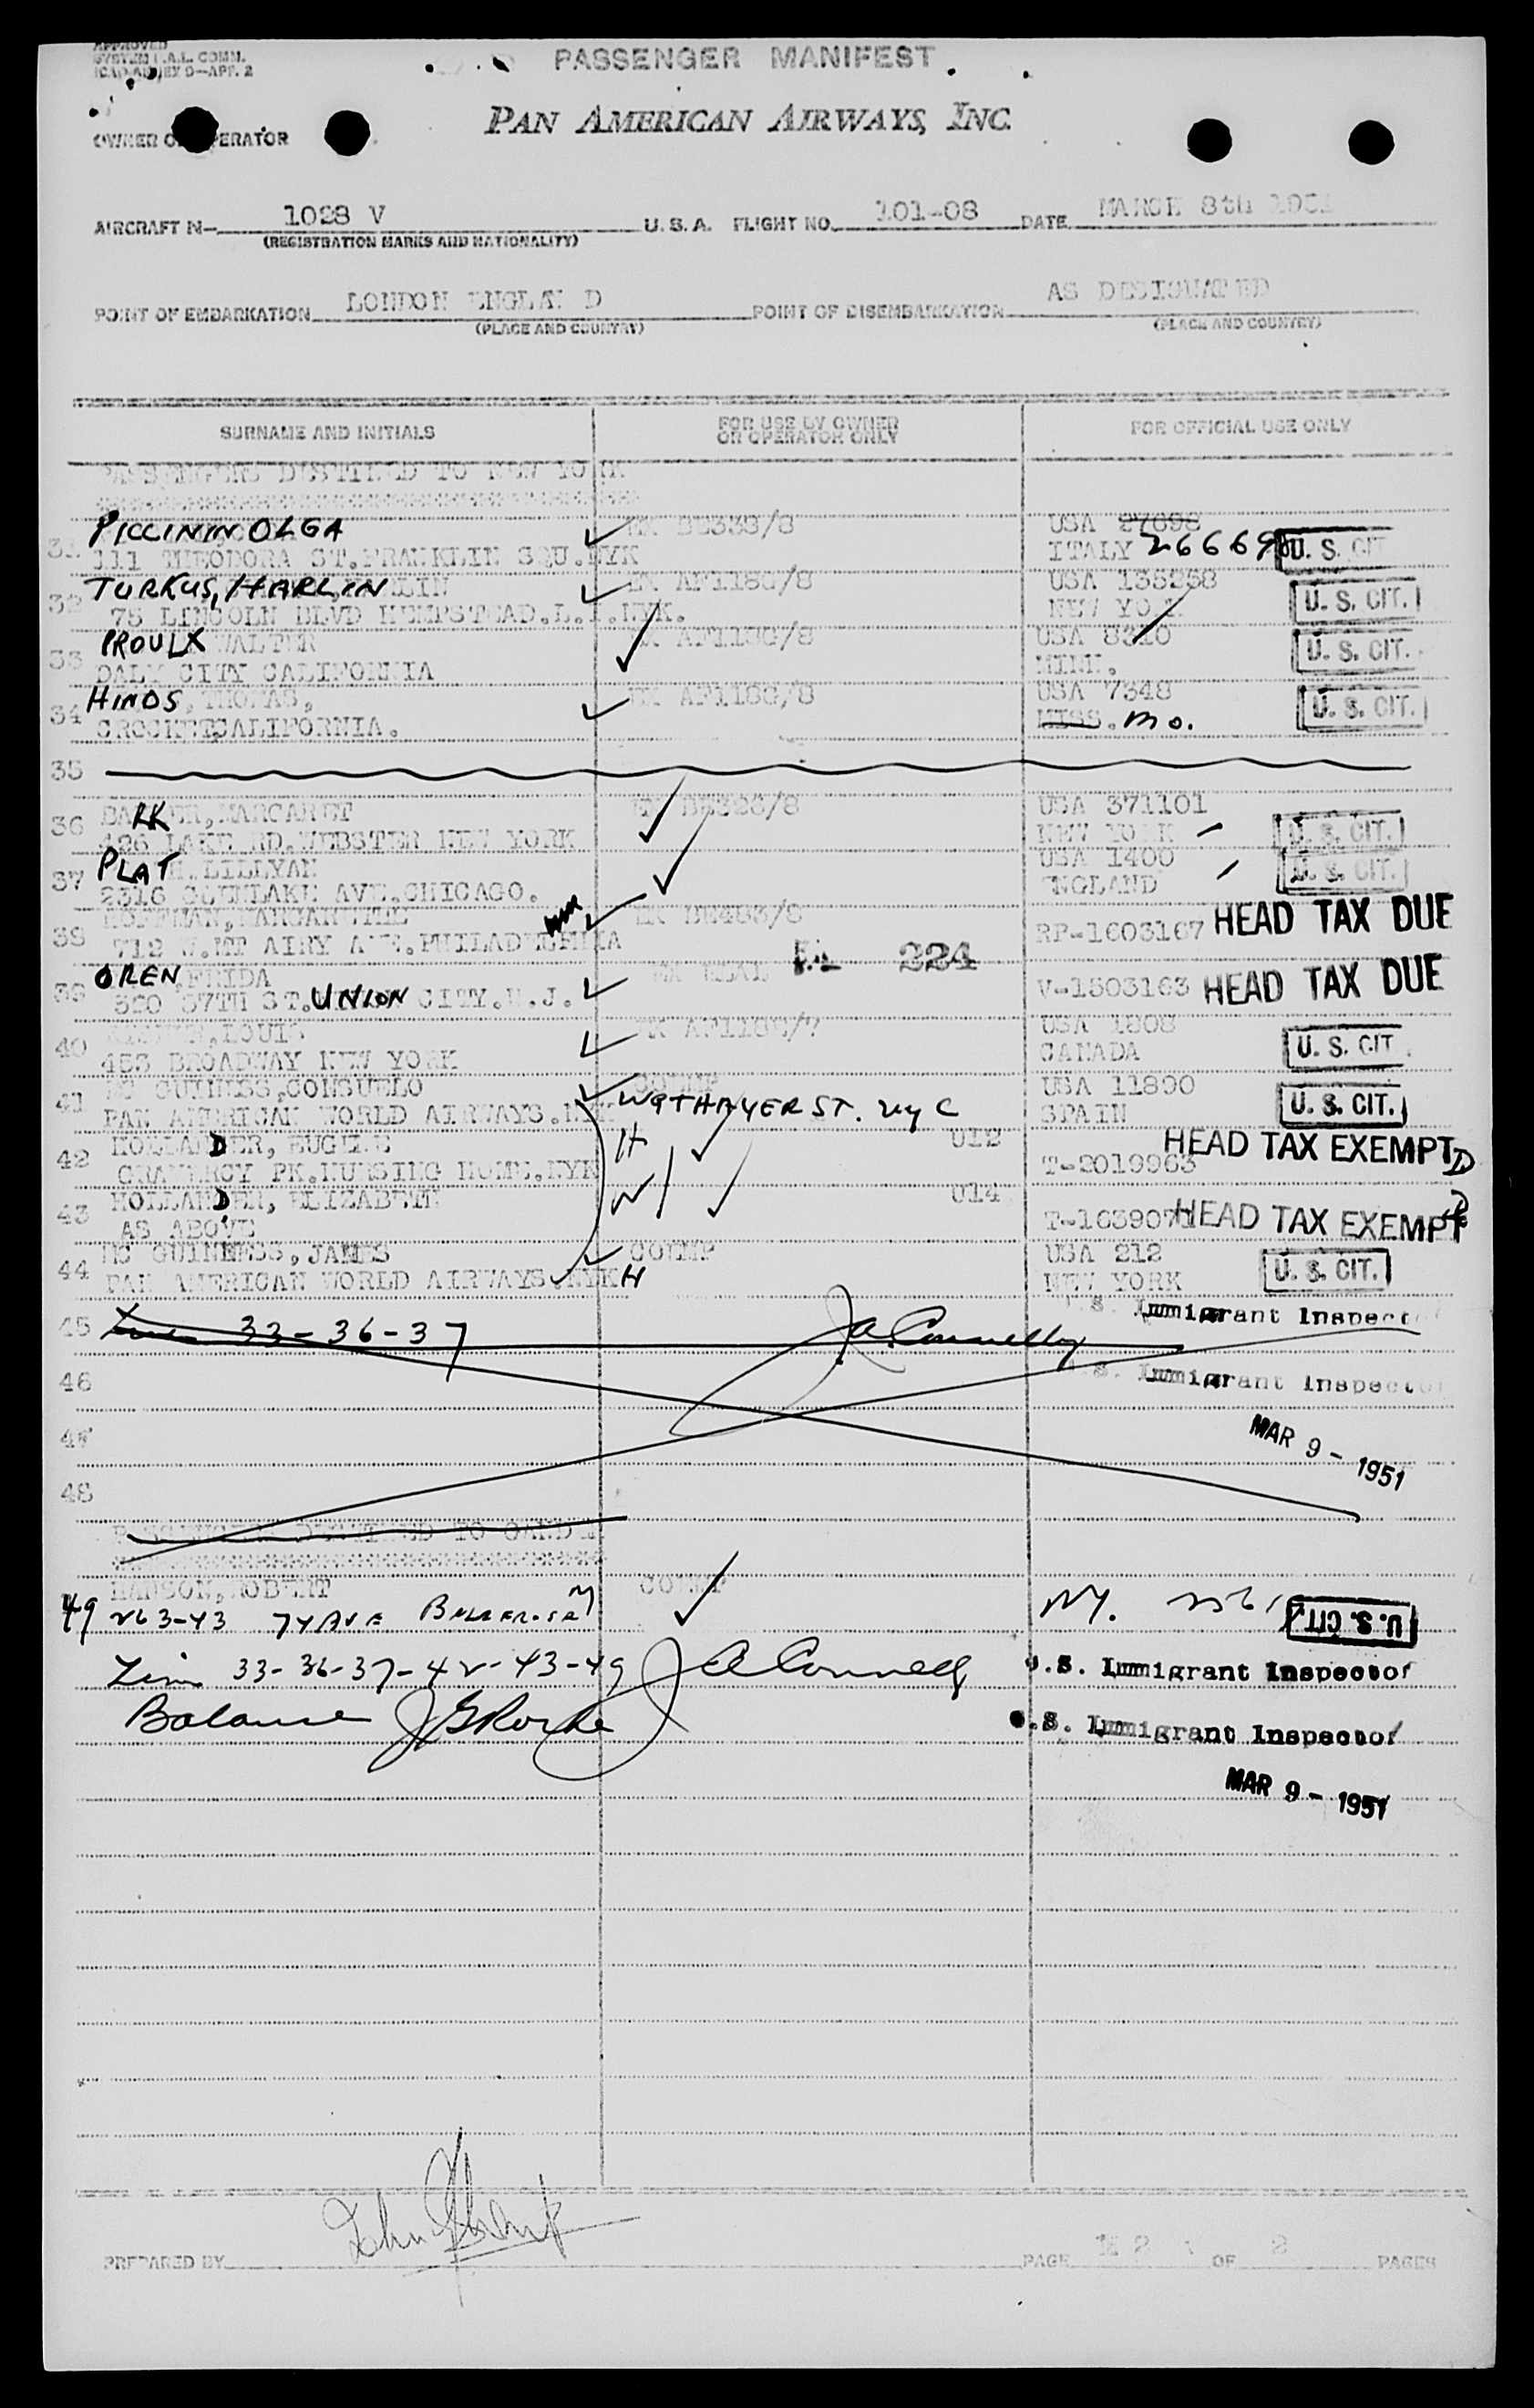 APPROVED
SYSTEM F.A.L. COMM.
ICAO ANNEX 9—APP. 2
PASSENGER MANIFEST
PAN AMERICAN AIRWAYS, INC.
OWNER OR OPERATOR
AIRCRAFT N- 1028 V U. S. A. FLIGHT NO. 101-08 DATE MARCH 8th 1951
(REGISTRATION MARKS AND NATIONALITY)
POINT OF EMBARKATION LONDON ENGLAND POINT OF DISEMBARKATION AS DESIGNATED
(PLACE AND COUNTRY) (PLACE AND COUNTRY)
SURNAME AND INITIALS FOR USE BY OWNER OR OPERATOR ONLY FOR OFFICIAL USE ONLY
PASSENGERS DESTINED TO NEW YORK
PICCININ OLGA BE338/8 USA 27698
31 111 THEODORA ST. FRANKLIN SQU. NYK ITALY 26669 U. S. CIT
TURKUS, HARLIN AF1186/8 USA 135258
32 75 LINCOLN BLVD HEMPSTEAD. L. I. NYK. NEW YORK U. S. CIT.
PROULX WALTER AF1186/8 USA 8310
33 DALY CITY CALIFORNIA MINN. U. S. CIT.
HINDS, THOMAS, AF1186/8 USA 7348
34 CROCKETT CALIFORNIA. MISS. Mo. U. S. CIT.
35
36 BARKER, MARGARET BE326/8 USA 371101
426 LAKE RD. WEBSTER NEW YORK NEW YORK U. S. CIT.
PLAT LILLYAN USA 1400
37 2316 AVE. CHICAGO. ENGLAND U. S. CIT.
38 HOFFMAN, MARGARETHE BE483/8 RP-1603167 HEAD TAX DUE
712 W. MT AIRY AVE. PHILADELPHIA
OREN FRIDA 224
39 320 37TH ST. UNION CITY. N. J. V-1503163 HEAD TAX DUE
40 LOUIS AF1186/7 USA 1808
453 BROADWAY NEW YORK CANADA U. S. CIT
41 MC GUINESS, CONSUELO COEMP USA 11890
PAN AMERICAN WORLD AIRWAYS. NYK W 9 THAYER ST. NYC SPAIN U. S. CIT.
42 HOLLANDER, EUGENE H U12 HEAD TAX EXEMPT
GRAMERCY PK. NURSING HOME. NYK T-2019963
43 HOLLANDER, ELIZABETH W U14
AS ABOVE T-1639071 HEAD TAX EXEMPT
44 MC GUINESS, JAMES COEMP USA 212
PAN AMERICAN WORLD AIRWAYS. NYK H NEW YORK U. S. CIT.
U.S. Immigrant Inspector
45 Lines 33-36-37 J A Connelly
46 U.S. Immigrant Inspector
47 MAR 9 - 1951
48
PASSENGERS DESTINED TO
HANSON, ROBERT COEMP
49 263-43 74 AVE NY. U.S. CIT.
Lines 33-36-37-42-43-49 J A Connelly U.S. Immigrant Inspector
Balance J G Rorke U.S. Immigrant Inspector
MAR 9 - 1951
PREPARED BY PAGE 2 OF 2 PAGES